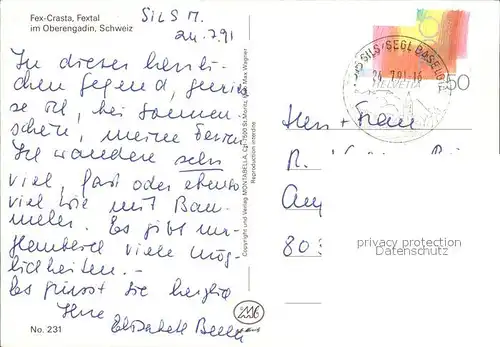 Fex-Crasta, Fextal
im Oberengadin, Schweiz
SILS M.
24.7.91
In dieser herrli-
chen Gegend, genies-
se ich, bei Sonnen-
schein, meine Ferien
Ich wandere sehr
viel, fast oder ebenso
viel wie mit Bau-
meler. Es gibt un-
glaubend viele mög-
lichkeiten.-
Es grüsst Sie herzlich
Ihre
Elisabeth
No. 231
Copyright und Verlag MONTABELLA, CH-7500 St. Moritz, Max Wagner
Reproduction interdite
SILS/SEGL BASELGIA
24.7.91-16
HELVETIA
50
Herr + Frau
R.
80
privacy protection
Datenschutz